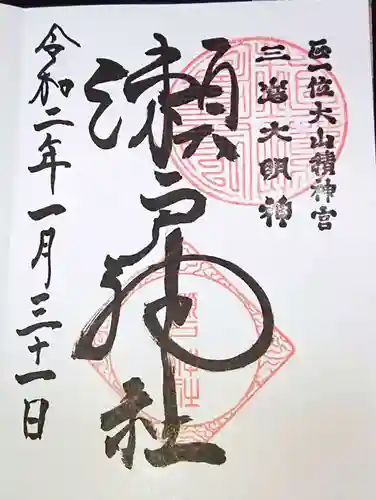 正一位大山積神宮
三島大明神
瀬戸神社
令和二年一月三十一日